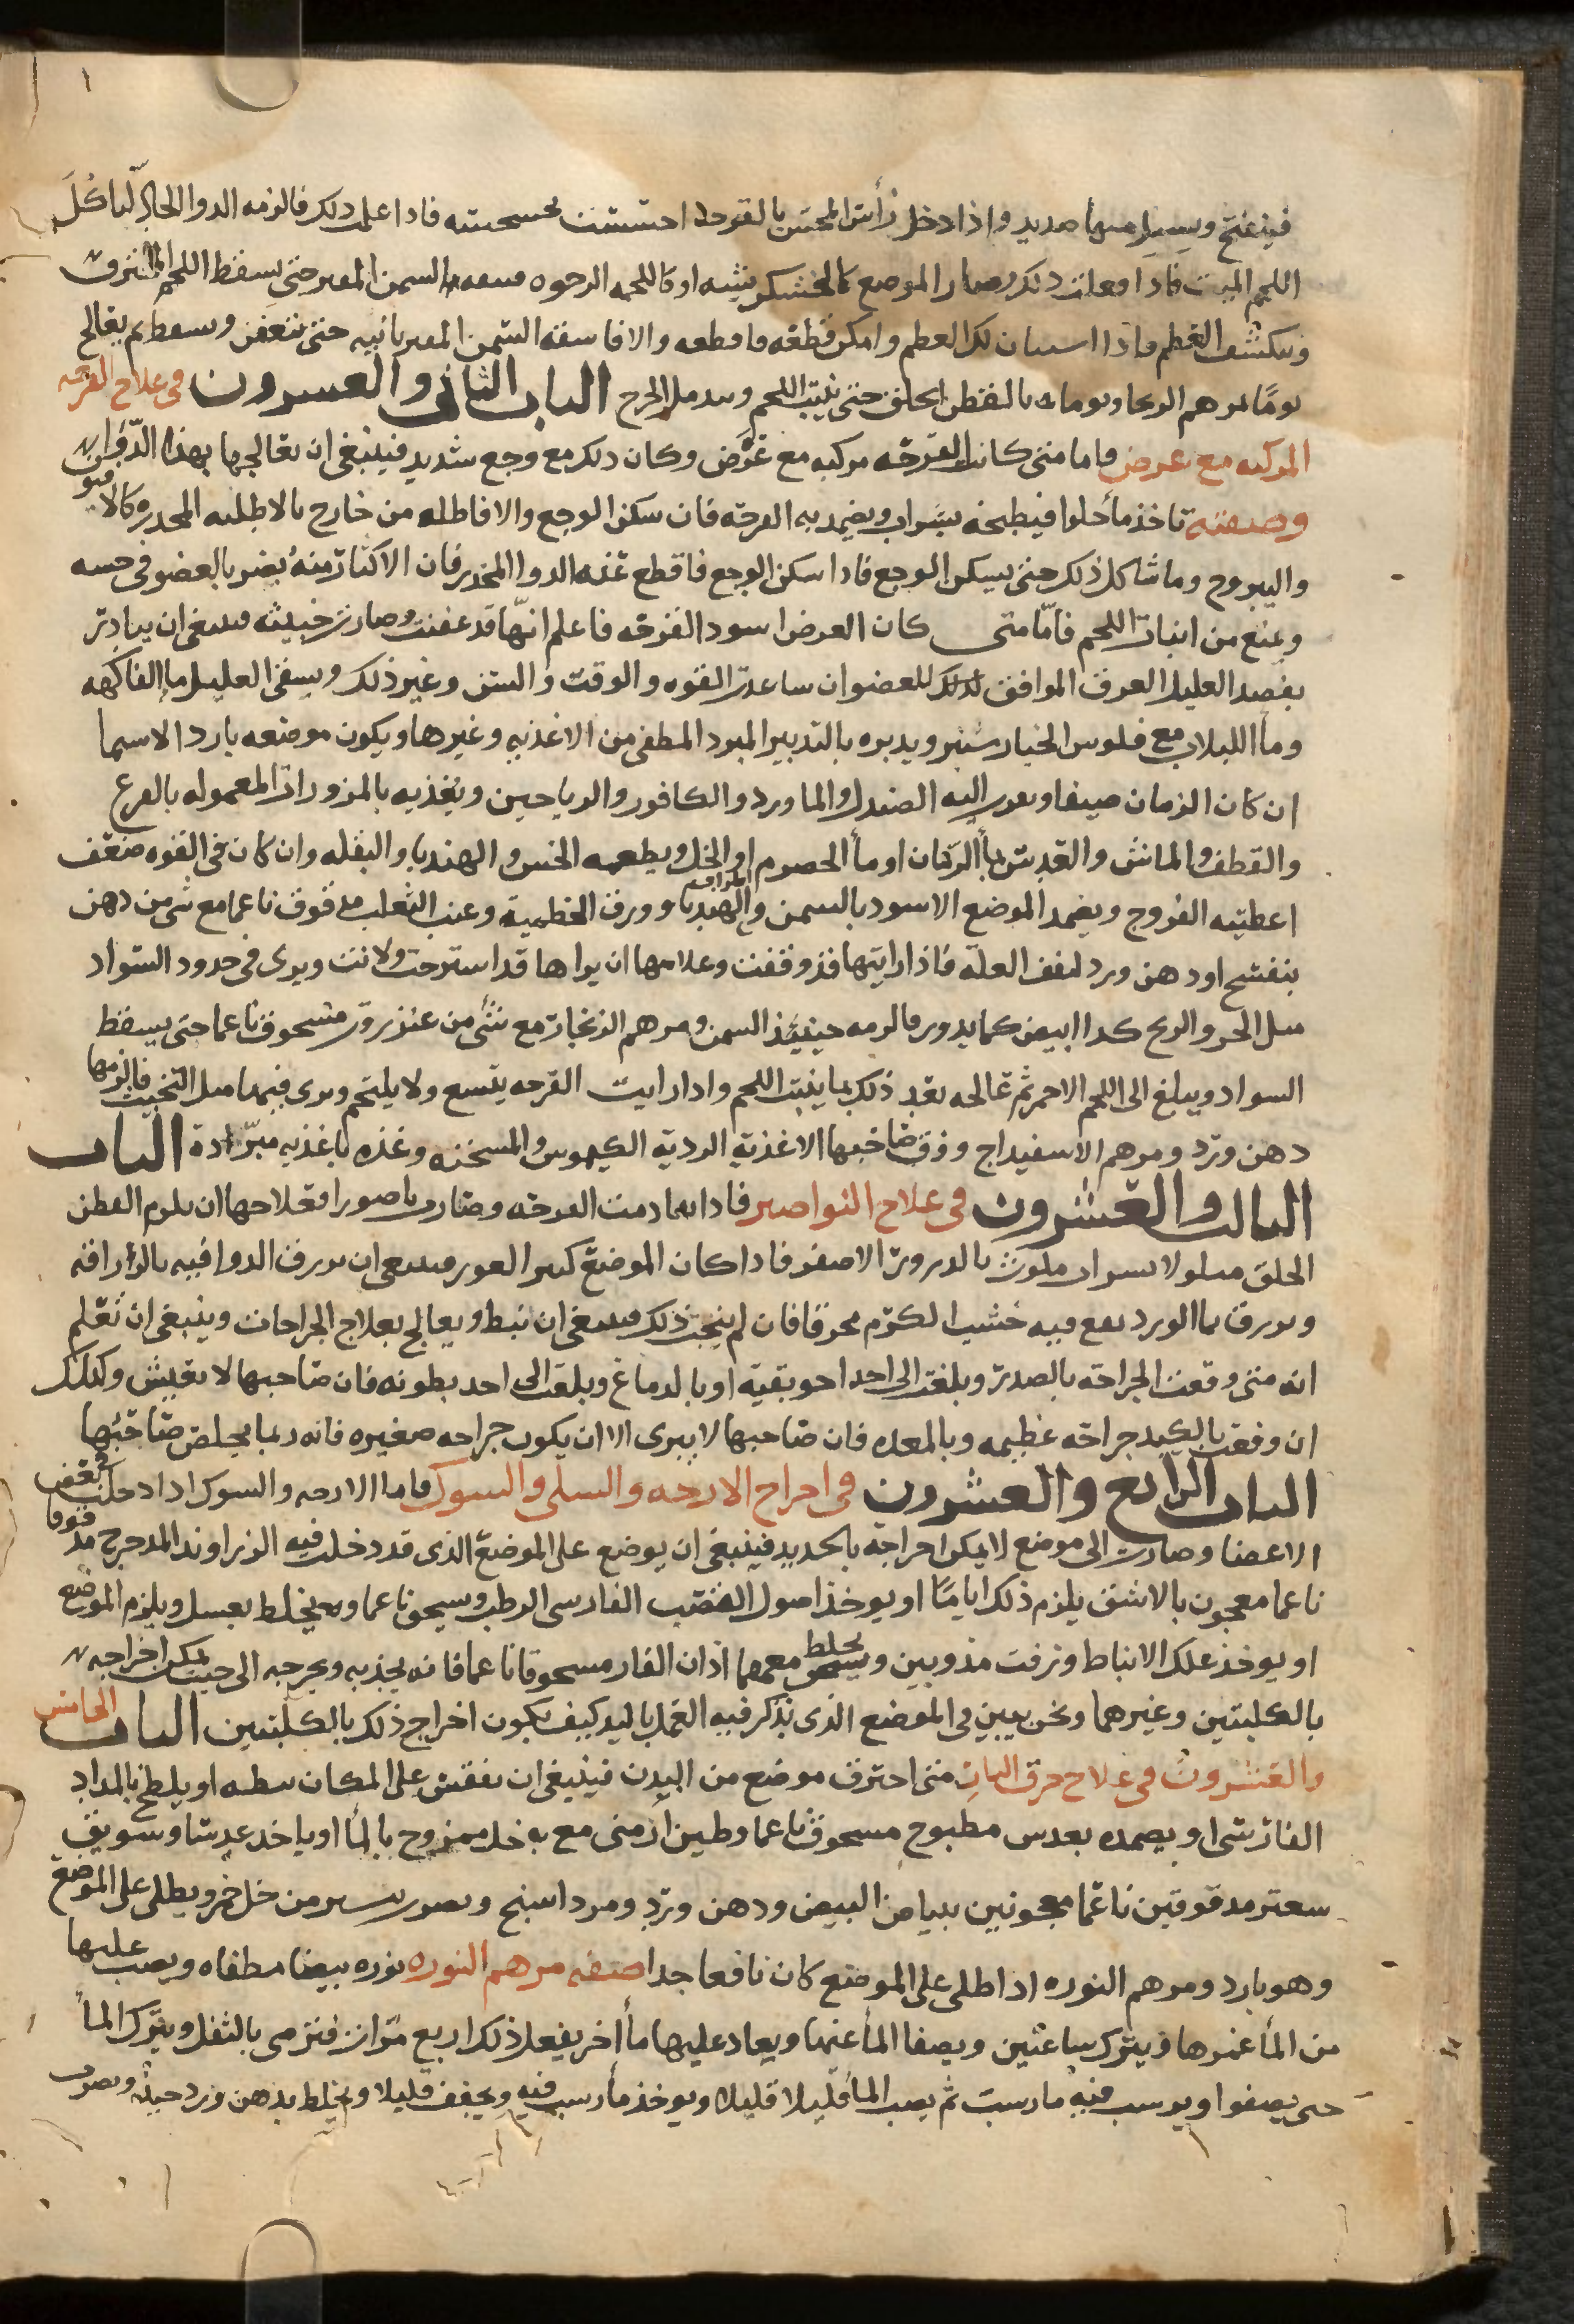 ١
فينفتح ويسيل منها صديد واذا دخل رأس المجس بالقرحه احتسست بخشخشته فاذا علمت ذلك فالزمه الدوا الحاد لياكل
اللحم الميت فاذا فعلت ذلك وصار الموضع كالخشكريشه او كاللحمه الرخوه فضمده بالسمن المفتر حتى يسقط اللحم المحترق
وينكشف العظم فاذا استبان لك العظم وامكن قطعه فاقطعه والا فاسقه السمن المفتر ثانيه حتى يتعفن ويسقط ثم يعالج
يوما بمرهم الزنجار ويوما بالقطن الخلق حتى ينبت اللحم ويندمل الجرح الباب الثانى والعشرون فى علاج القرحه
المركبه مع عرض فاما متى كانت القرحه مركبه مع عرض وكان ذلك مع وجع شديد فينبغى ان تعالجها بهذا الدوا
وصفته تاخذ مأ حلوا فيطبخه بشراب ويضمد به القرحه فان سكن الوجع والا فاطله من خارج بالاطليه المخدره كالافيون
واليبروح وما شاكل ذلك حتى يسكن الوجع فاذا سكن الوجع فاقطع عنه الدوا المخدر فان الاكثار منه يضر بالعضو فى حسه
ويمنع من انبات اللحم فامّا متى كان العرض اسود القرحه فاعلم انّها قد عفنت وصارت خبيثه فينبغى ان يبادر
بفصد العليل العرق الموافق لذلك للعضو ان ساعدت القوه والوقت والسن وغير ذلك ويسقى العليل ما الفاكهه
ومأ اللبلاب مع فلوس الخيار شنبر ويدبره بالتدبير المبرد المطفى من الاغذيه وغيرها ويكون موضعه بارد الاسيما
ان كان الزمان صيفا ويقرب اليه الصندل والماورد والكافور والرياحين ويغذيه بالمزورات المعموله بالقرع
والقطف والماش والعدس بمأ الرمان او مأ الحصرم او الخل ويطعمه الخس والهندبا والبقله وان كان فى القوه ضعف
اعطيته الفروج ويضمد الموضع الاسود بالسمن والهندبا وورق الخطمية وعنب الثعلب مدقوق ناعما مع شى من دهن
بنفسج او دهن ورد لتقف العله فاذا رايتها قد وقفت وعلامتها ان يراها قد استرخت ولانت ويرى فى حدود السواد
مثل الحز والريح كدا ابيض كما يدور فالزمه حينئذ السمن ومرهم الزنجار مع شئ من عنزروت مسحوق ناعما حتى يسقط
السواد ويبلغ الى اللحم الاحمر ثم تعالجه بعد ذلك بما ينبت اللحم واذا رايت القرحه يتسع ولا يلتحم ويرى فيها مثل النخبيت فالزمها
دهن ورد ومرهم الاسفيداج ووق صاحبها الاغذيه الرديه الكيموس والمسخنه وغذه باغذيه مبرّده الباب
الثالث والعشرون فى علاج النواصير فاذا تمادمت القرحه وصارت ناصورا فعلاجها ان يلزم القطن
الخلق مبلولا بشراب ملوث بالدرور الاصفر فاذا كان الموضع كثير الغور فينبغى ان يزرق الدوا فيه بالزرافه
ويزرق بما الورد نقع فيه خشب الكرم محرقا فان لم ينجب ذلك فينبغى ان تبط ويعالج بعلاج الجراحات وينبغى ان تعلم
انه متى وقعت الجراحه بالصدر وبلغت الى احد احوبقيه او بالدماغ وبلغت الى احد بطونه فان صاحبها لا يعيش وكذلك
ان وقعت بالكبد جراحه عظيمه وبالمعده فان صاحبها لا يبرى الا ان يكون جراحه صغيره فانه ربما يخلص صاحبها
الباب الرابع والعشرون فى اخراج الازجه والسلى والشوك فاما الازجه والشوك اذا دخلت فى بعض
الاعضا وصارت الى موضع لا يمكن اخراجه بالحديد فينبغى ان يوضع على الموضع الذى قد دخلت فيه الزراوند المدحرج مدقوقا
ناعما معجون بالاشق يلزم ذلك اياما او يوخذ اصول القصب الفارسى الرطب ويسحق ناعما ويخلط بعسل ويلزم الموضع
او يوخذ علك الانباط وزفت مذوبين ويخلط معهما اذان الفار مسحوقا ناعما فانه يجذبه ويخرجه الى حيث يمكن اخراجه
بالكلبتين وغيرهما ونحن نبين فى الموضع الذى نذكر فيه العمل باليد كيف يكون اخراج ذلك بالكلبتين الباب الخامس
والعشرون فى علاج حرق النار متى احترق موضع من البدن فينبغى ان تفقش على المكان بيطه او يلطخ بالمداد
الفارسى او يضمده بعدس مطبوخ مسحوق ناعما وطين ارمنى مع به خل ممزوج بالمأ او ياخذ عدسا وسويق
سعتر مدقوقين ناعما معجونين ببياض البيض ودهن ورد ومرداسنج ويصوب يسير من خل خمر ويطلى على الموضع
وهو بارد ومرهم النوره اذا طلى على الموضع كان نافعا جدا صفه مرهم النوره نوره بيضا مطفاه ويصب عليها
من المأ غمرها ويترك ساعتين ويصفا المأ عنها ويعاد عليها مأ اخر يفعل ذلك اربع مرات فترمى بالثفل ويترك المأ
حتى يصفوا ويرسب فيه ما رسب ثم يصب المأ قليلا قليلا ويوخذ ما رسب فيه ويجفف قليلا ويخلط بدهن ورد حيد ويضرب